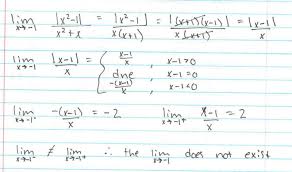 lim x→-1 |x²-1| / x²+x = |x²-1| / x(x+1) = |(x+1)(x-1)| / x(x+1) = |x-1| / x
lim x→-1 |x-1| / x = { x-1 / x , x-1>0
dne , x-1=0
-(x-1) / x , x-1<0
lim x→-1⁻ -(x-1) / x = -2 lim x→-1⁺ x-1 / x = 2
lim x→-1⁻ ≠ lim x→-1⁺ ∴ the lim x→-1 does not exist